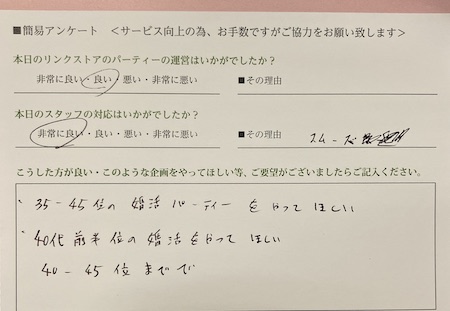 ■簡易アンケート ＜サービス向上の為、お手数ですがご協力をお願い致します＞
本日のリンクストアのパーティーの運営はいかがでしたか？
非常に良い・良い・悪い・非常に悪い ■その理由
本日のスタッフの対応はいかがでしたか？
非常に良い・良い・悪い・非常に悪い ■その理由 スムーズ
こうした方が良い・このような企画をやってほしい等、ご要望がございましたらご記入ください。
・35-45位の婚活パーティーをやってほしい
・40代前半位の婚活をやってほしい
40-45位までで